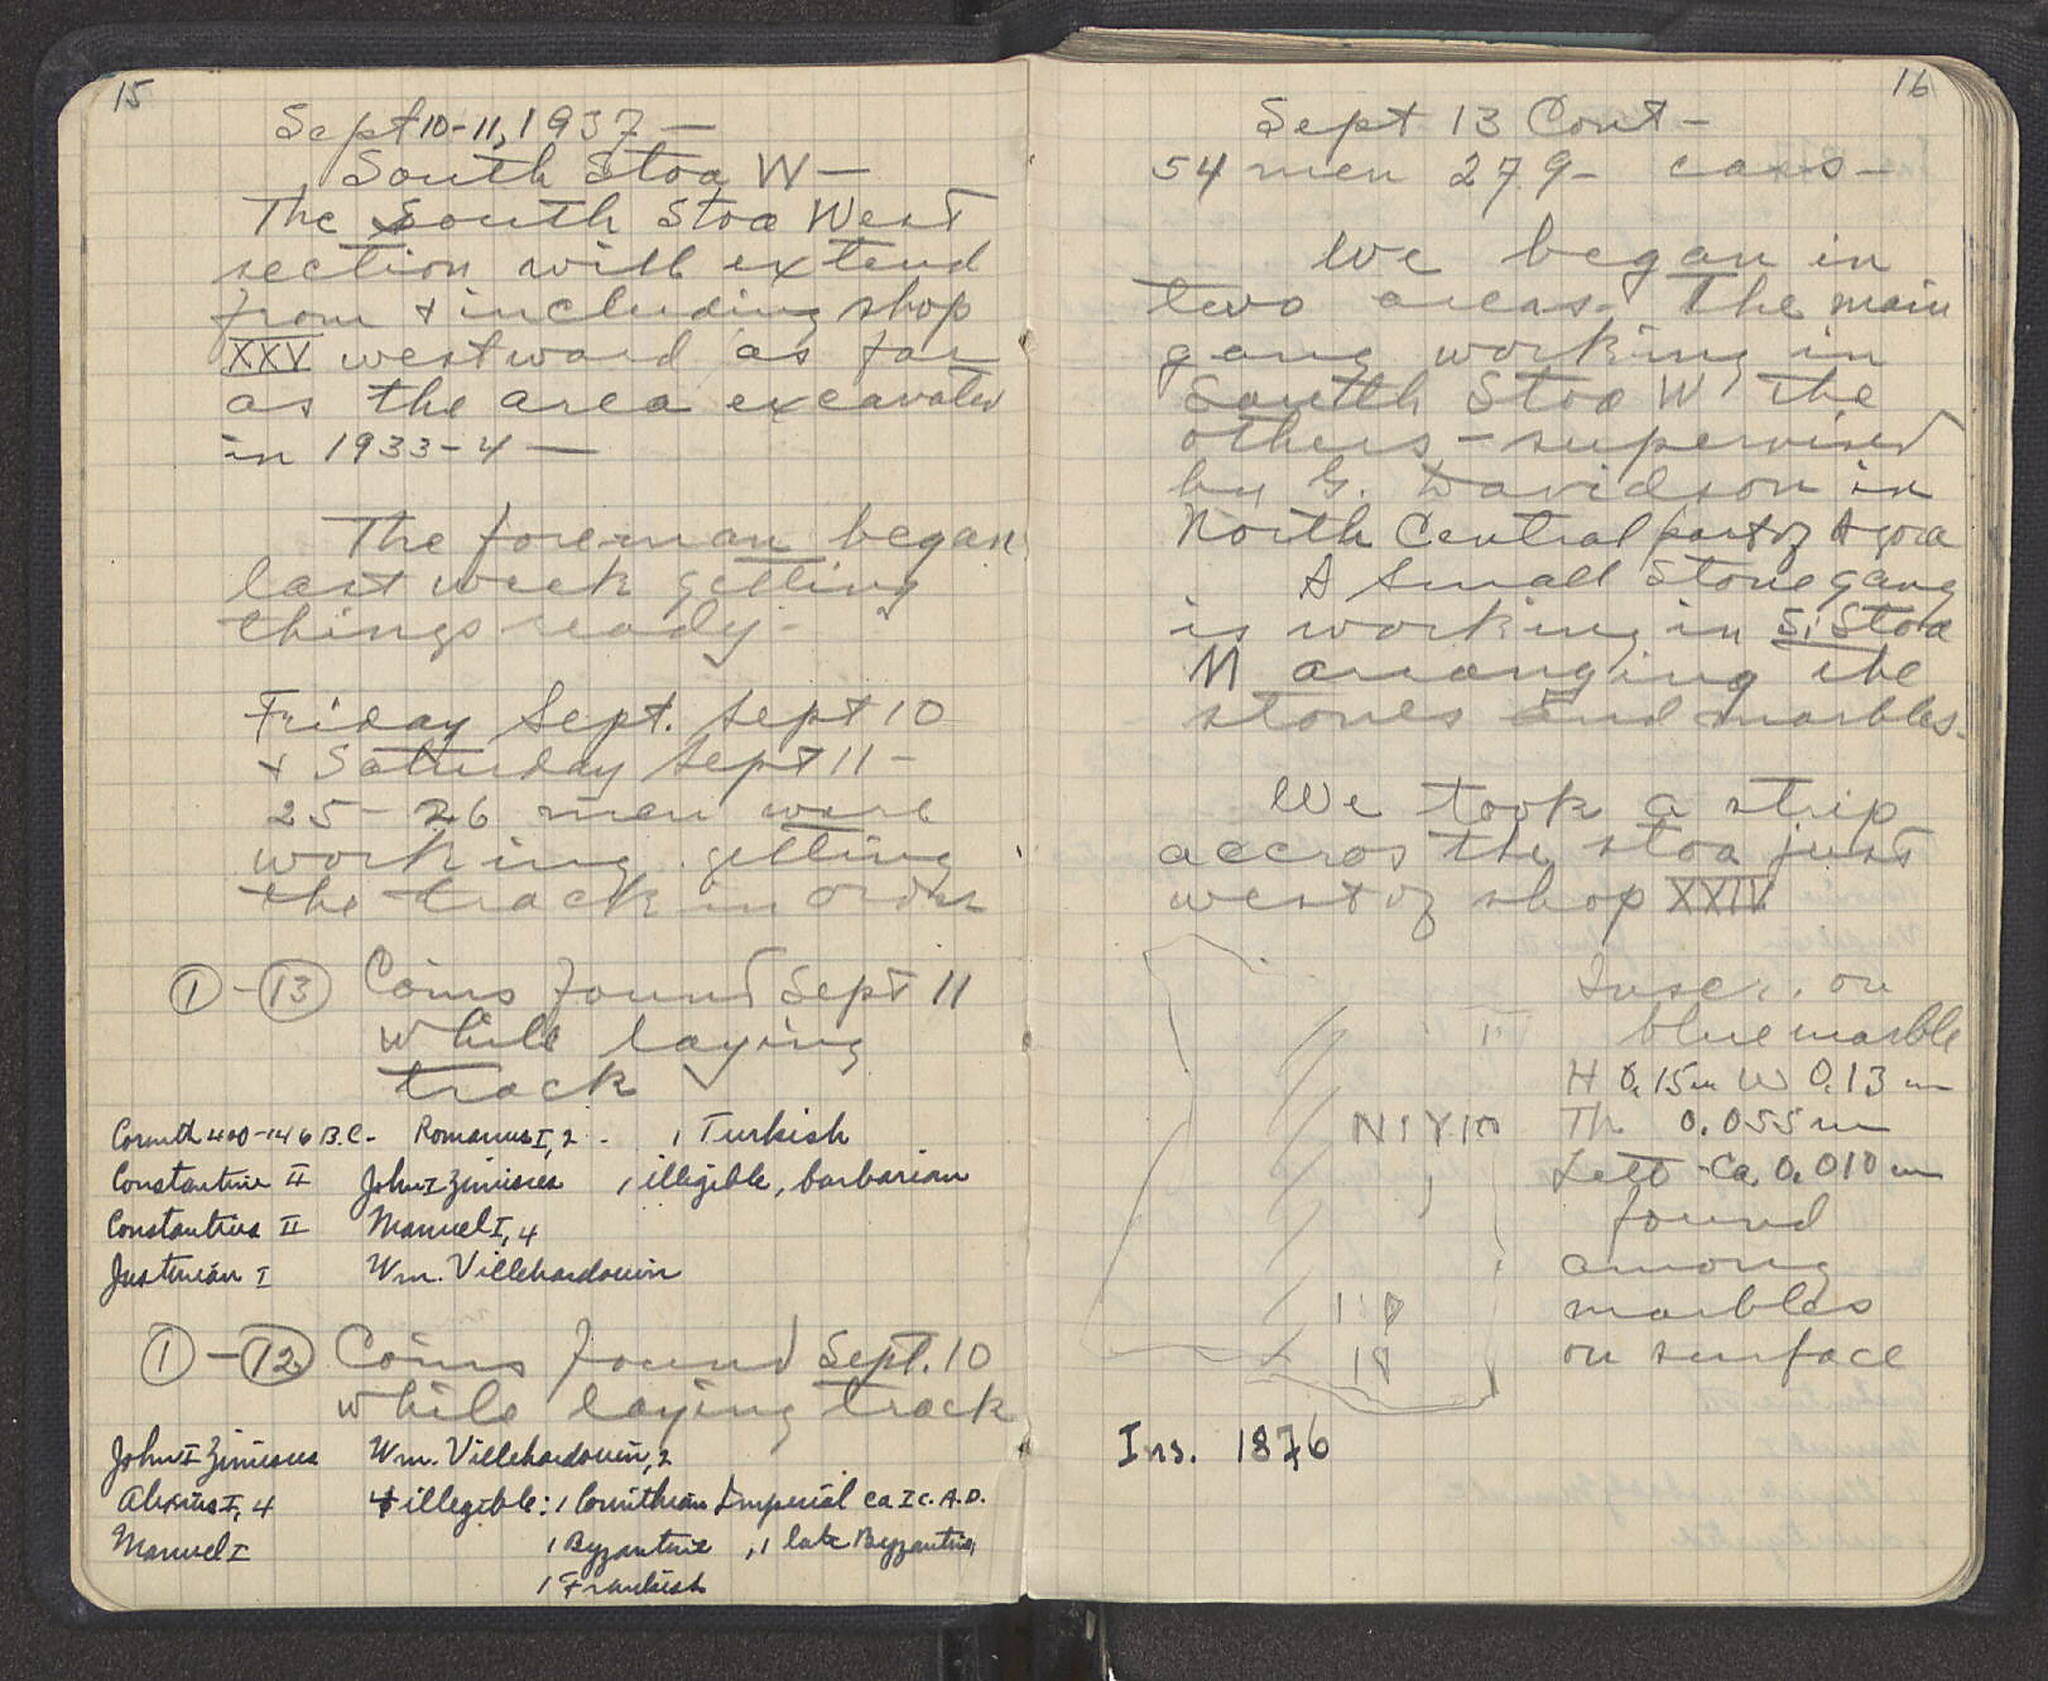 15
Sept 10-11, 1937 —
South Stoa W —
The South Stoa West
section will extend
from + including shop
XXV westward as far
as the area excavated
in 1933-4 —
The foreman began
last week getting
things ready -
Friday Sept. Sept 10
+ Saturday Sept 11 -
25 - 26 men were
working getting
the track in order
1 - 13 Coins found Sept 11
while laying
track
Corinth 400-146 B.C. - Romanus I, 2 - 1 Turkish
Constantine II John I Zimisces 1 illegible, barbarian
Constantius II Manuel I, 4
Justinian I Wm. Villehardouin
1 - 12 Coins found Sept. 10
while laying track
John I Zimisces Wm. Villehardouin, 2
Alexius I, 4 4 illegible: 1 Corinthian Imperial ca I c. A.D.
Manuel I 1 Byzantine, 1 late Byzantine,
1 Frankish
16
Sept 13 Cont -
54 men 279 - cars -
We began in
two areas. The main
gang working in
South Stoa W the
others - supervised
by G. Davidson in
North Central part of Agora
A small stone gang
is working in S. Stoa
M arranging the
stones and marbles.
We took a strip
accros the stoa just
west of shop XXIV
Inscr. on
blue marble
H 0.15m W 0.13 m
Th 0.055 m
Lett - Ca. 0.010 m
found
among
marbles
on surface
Ins. 1876